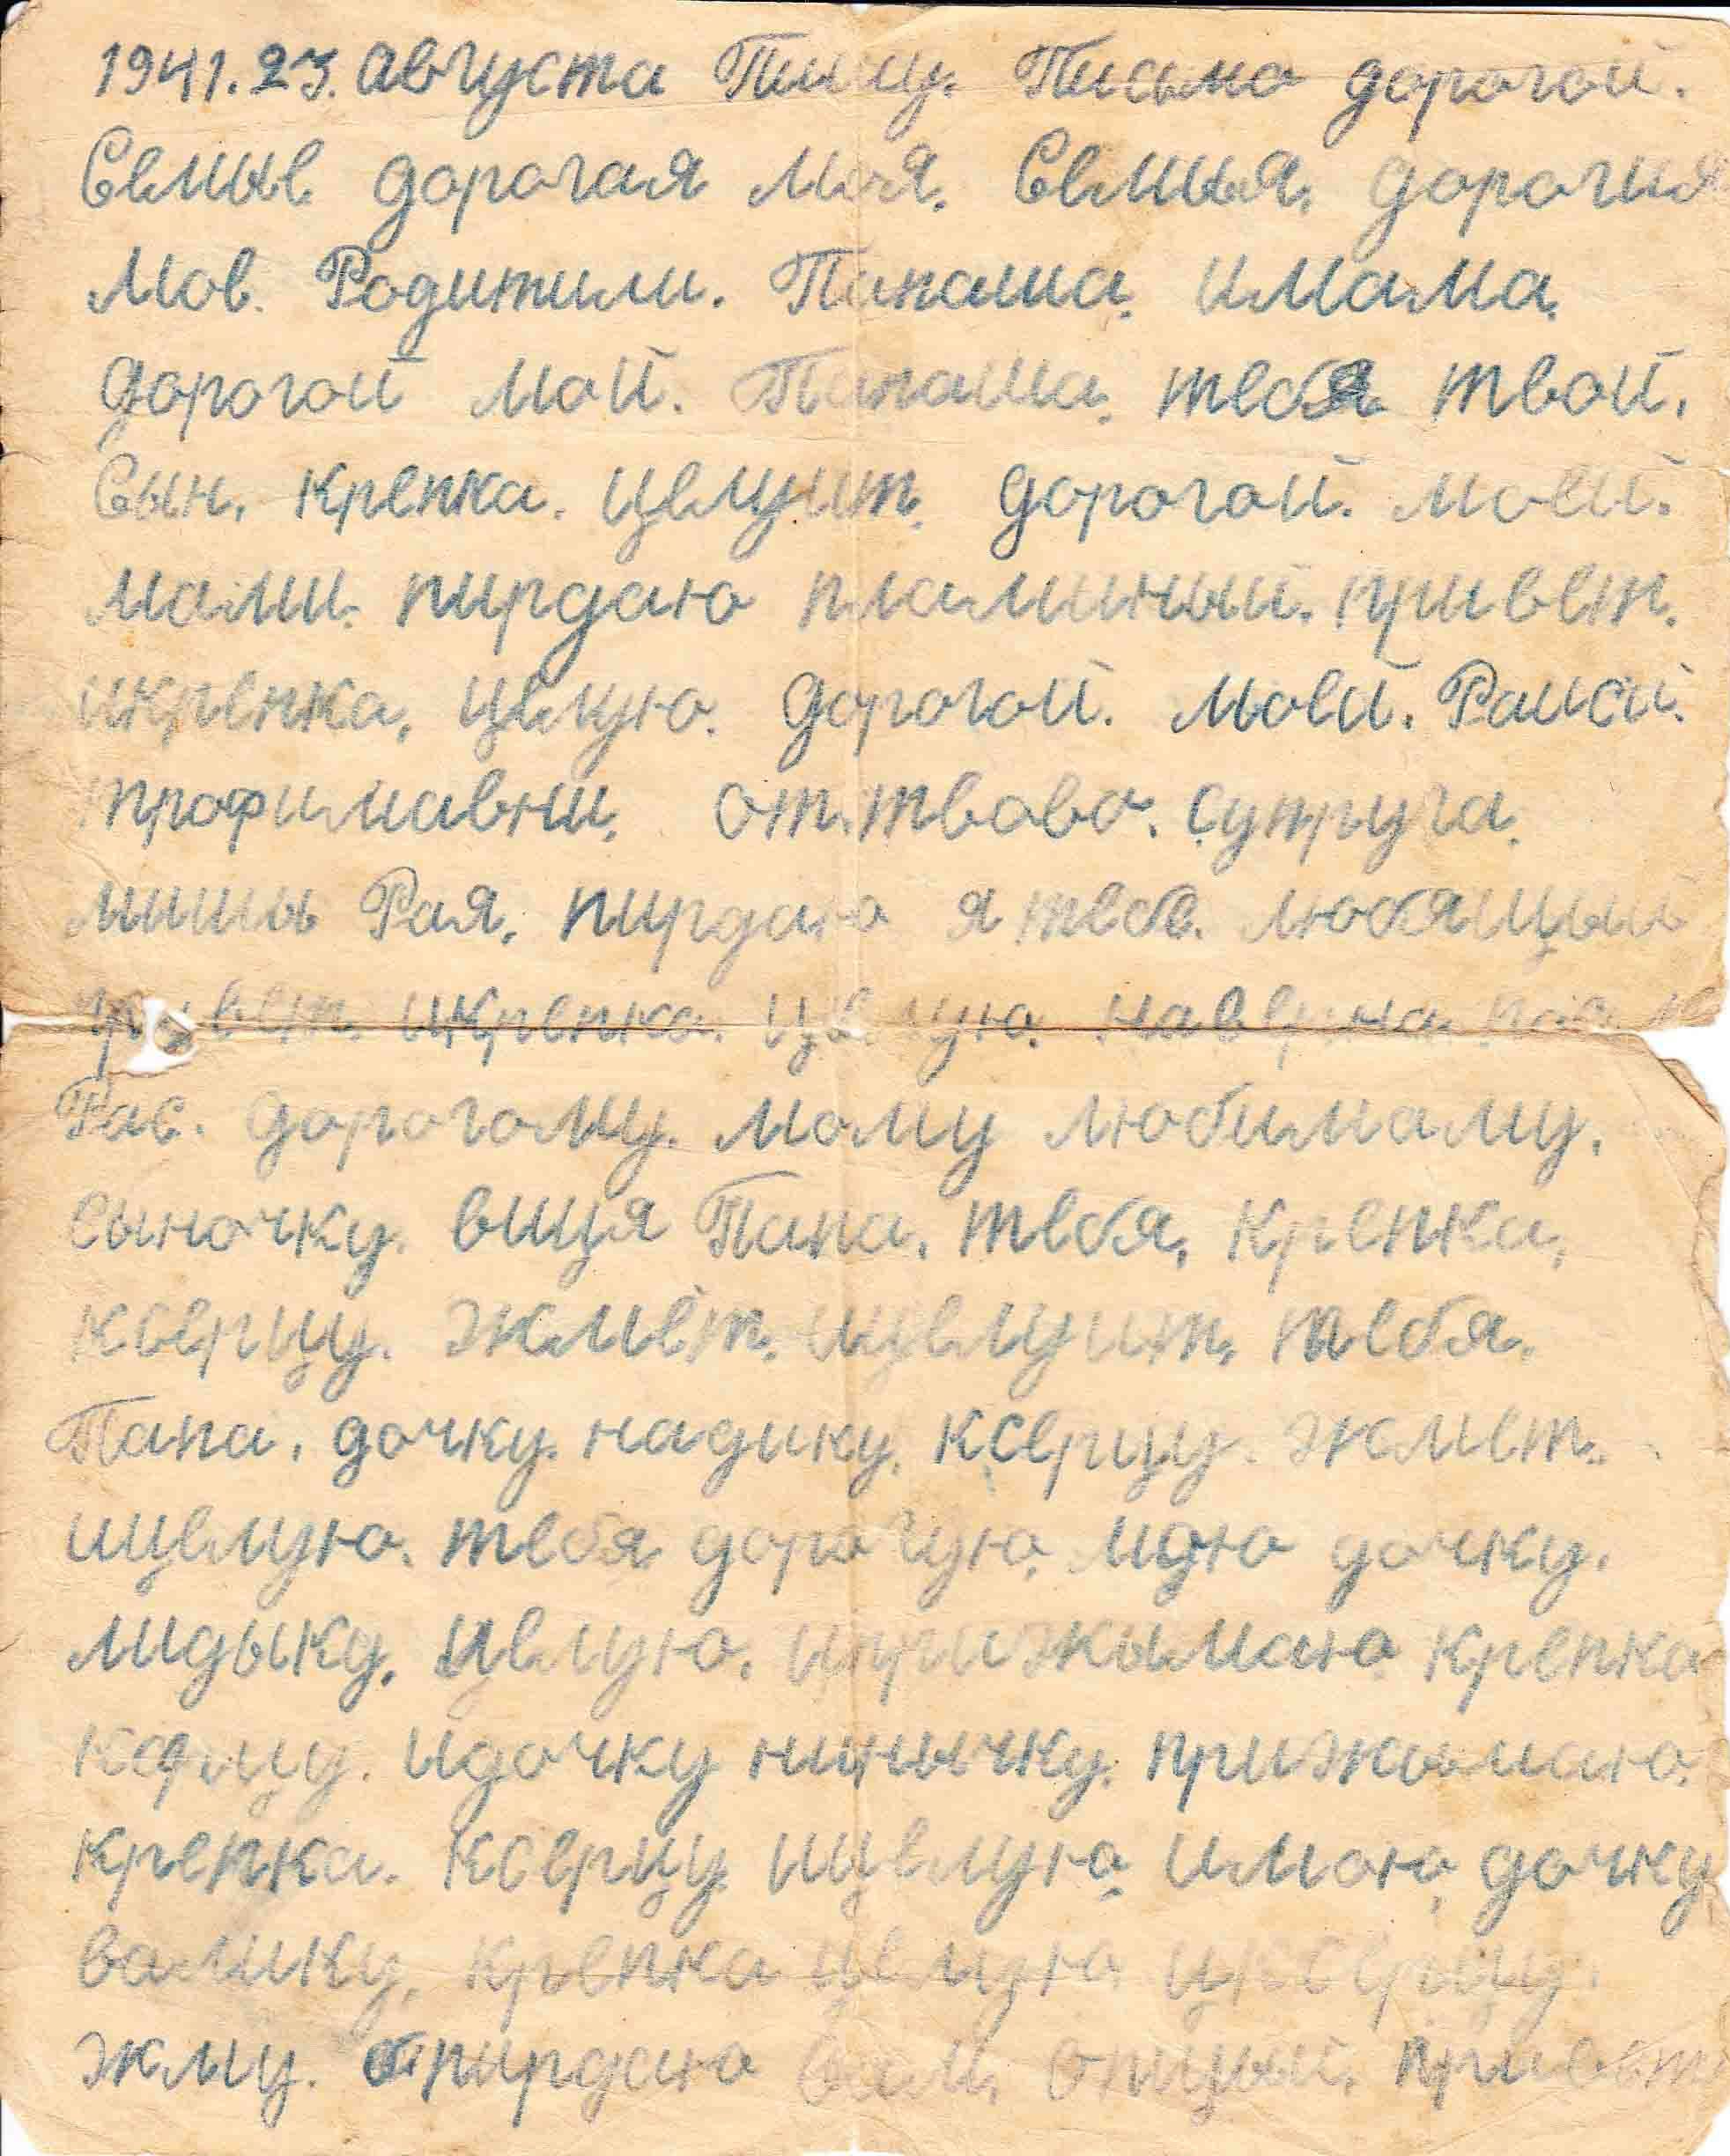 1941. 23. августа Пишу. Письмо дорогой.
Семье. дорогая моя. Семья. дорогия
Мое. Родитили. Папаша. имама.
дорогой мой. Папаша. тебя твой.
Сын. крепка. целуит. дорогой. моей.
мами. пирдаю пламиный. привет.
икрепка. целую. дорогой. моей. Раиси.
трофимавни. от твово. супруга.
миши Рая. пирдаю я тебе. любящый
привет. икрепка. целую. наверна.
Рас. дорогому. мому любимаму.
сыночку. вищя Папа. тебя. крепка.
ксерцу. жмёт. ицелуит. тебя.
Папа. дочку. надику. ксерцу. жмет.
ицелую. тебя дорогую. мою дочку.
лидыку. целую. иприжымаю крепка
ксерцу. идочку ниначку. прижымаю.
крепка. ксерцу ицелую. имою дочку
валику. крепка целую иксерцу.
жму. пирдаю вам. опщый. привет